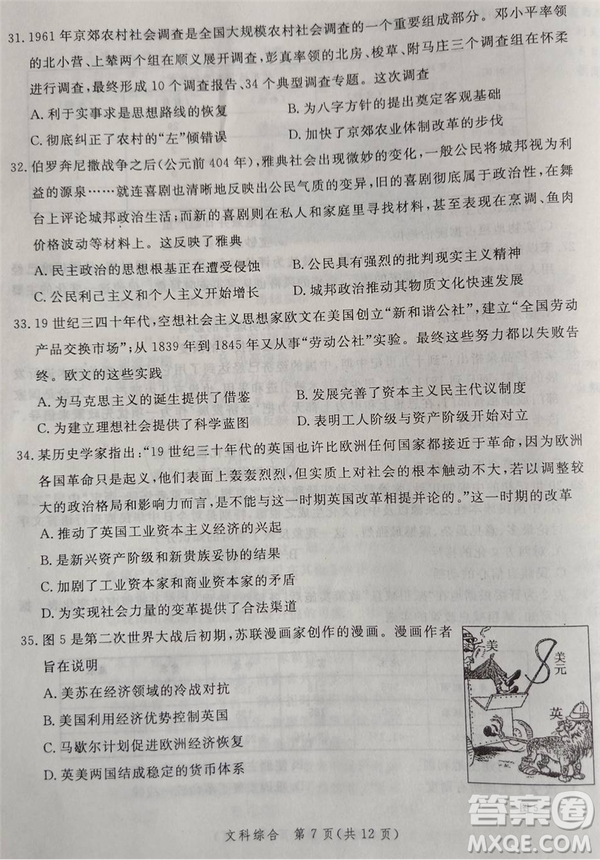 31.1961年京郊农村社会调查是全国大规模农村社会调查的一个重要组成部分。邓小平率领
的北小营、上辇两个组在顺义展开调查,彭真率领的北房、梭草、附马庄三个调查组在怀柔
进行调查,最终形成10个调查报告、34个典型调查专题。这次调查
A.利于实事求是思想路线的恢复 B.为八字方针的提出奠定客观基础
C.彻底纠正了农村的“左”倾错误 D.加快了京郊农业体制改革的步伐
32.伯罗奔尼撒战争之后(公元前404年),雅典社会出现微妙的变化,一般公民将城邦视为利
益的源泉……就连喜剧也清晰地反映出公民气质的变异,原先是公民—诗人直接在戏剧舞
台上评论城邦政治生活;而新的喜剧则在私人和家庭里寻找主题,或者表现在烹调、鱼肉
价格波动等材料上。这反映了雅典
A.民主政治的思想根基正在遭受侵蚀 B.公民具有强烈的批判现实主义精神
C.公民利己主义和个人主义开始增长 D.城邦政治推动其物质文化快速发展
33.19世纪三四十年代,空想社会主义思想家欧文在美国创立“新和谐公社”,建立“全国劳动
产品交换市场”;从1839年到1845年又从事“劳动公社”实验。最终,这些努力都以失败告
终。欧文的这些实践
A.为马克思主义的诞生提供了借鉴 B.发展完善了资本主义民主代议制度
C.为建立理想社会提供了科学蓝图 D.表明工人阶级与资产阶级开始大联合
34.某历史学家指出:“19世纪三十年代的英国也许比欧洲任何国家都接近于革命,因为欧洲
各国革命只是表面上轰轰烈烈,实际上对社会的根本性结构触动不大,若以调整较大
的政治格局和影响而言,是不能与这一时期英国改革相提并论的。”这一时期的改革
A.推动了英国工业资本主义经济的兴起
B.是新兴资产阶级和新贵族妥协的结果
C.加剧了工业资本家和商业资本家的矛盾
D.为社会力量的变革提供了合法渠道
35.图5是第二次世界大战后初期,苏联漫画家创作的漫画。漫画作者
旨在说明
A.美苏在经济领域的冷战对抗
B.美国利用经济优势控制英国
C.马歇尔计划促进欧洲经济恢复
D.英美两国结成稳定的货币体系
美
美元
英
文科综合 第7页(共12页)
答案卷
MXQE.COM